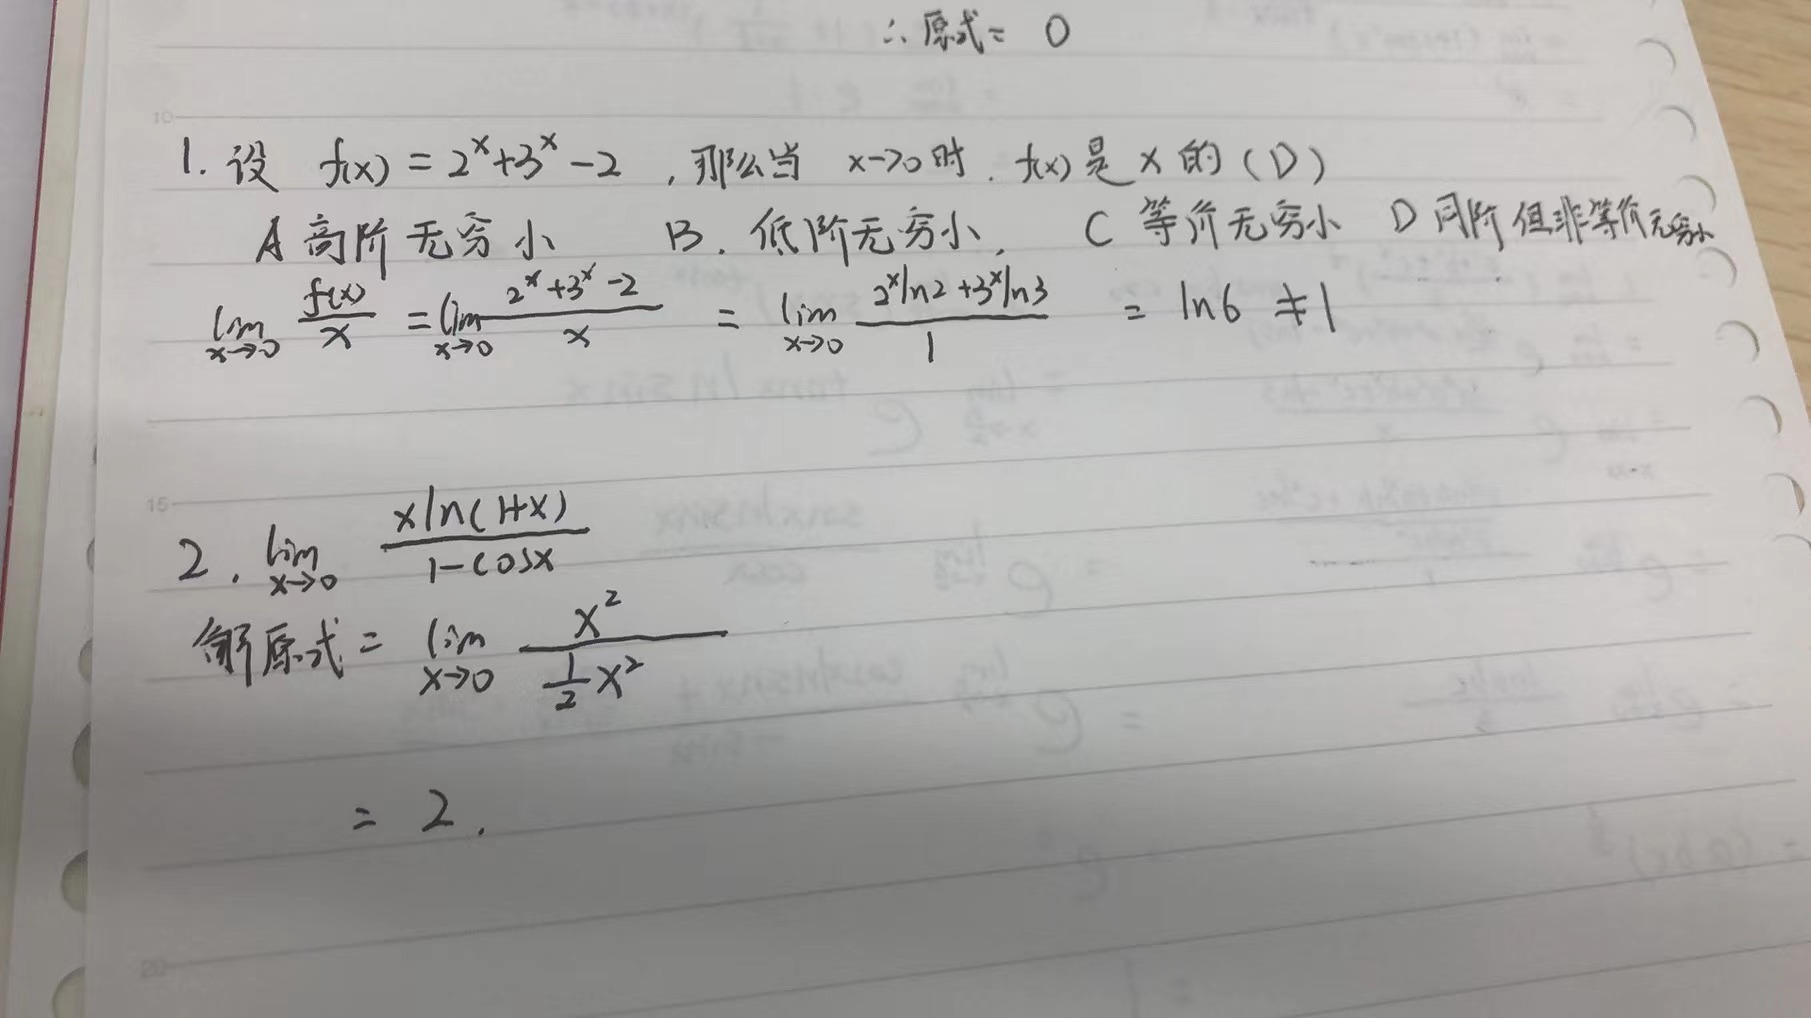 ∴原式= 0
1. 设 f(x) = 2^x+3^x-2 ,那么当 x→0时. f(x)是 x 的 (D)
A 高阶无穷小 B. 低阶无穷小. C 等价无穷小 D 同阶但非等价无穷小
lim_{x→0} f(x)/x = lim_{x→0} (2^x+3^x-2)/x = lim_{x→0} (2^x ln2+3^x ln3)/1 = ln6 ≠1
15
2. lim_{x→0} xln(1+x)/(1-cosx)
解原式= lim_{x→0} x²/(½x²)
= 2.
20